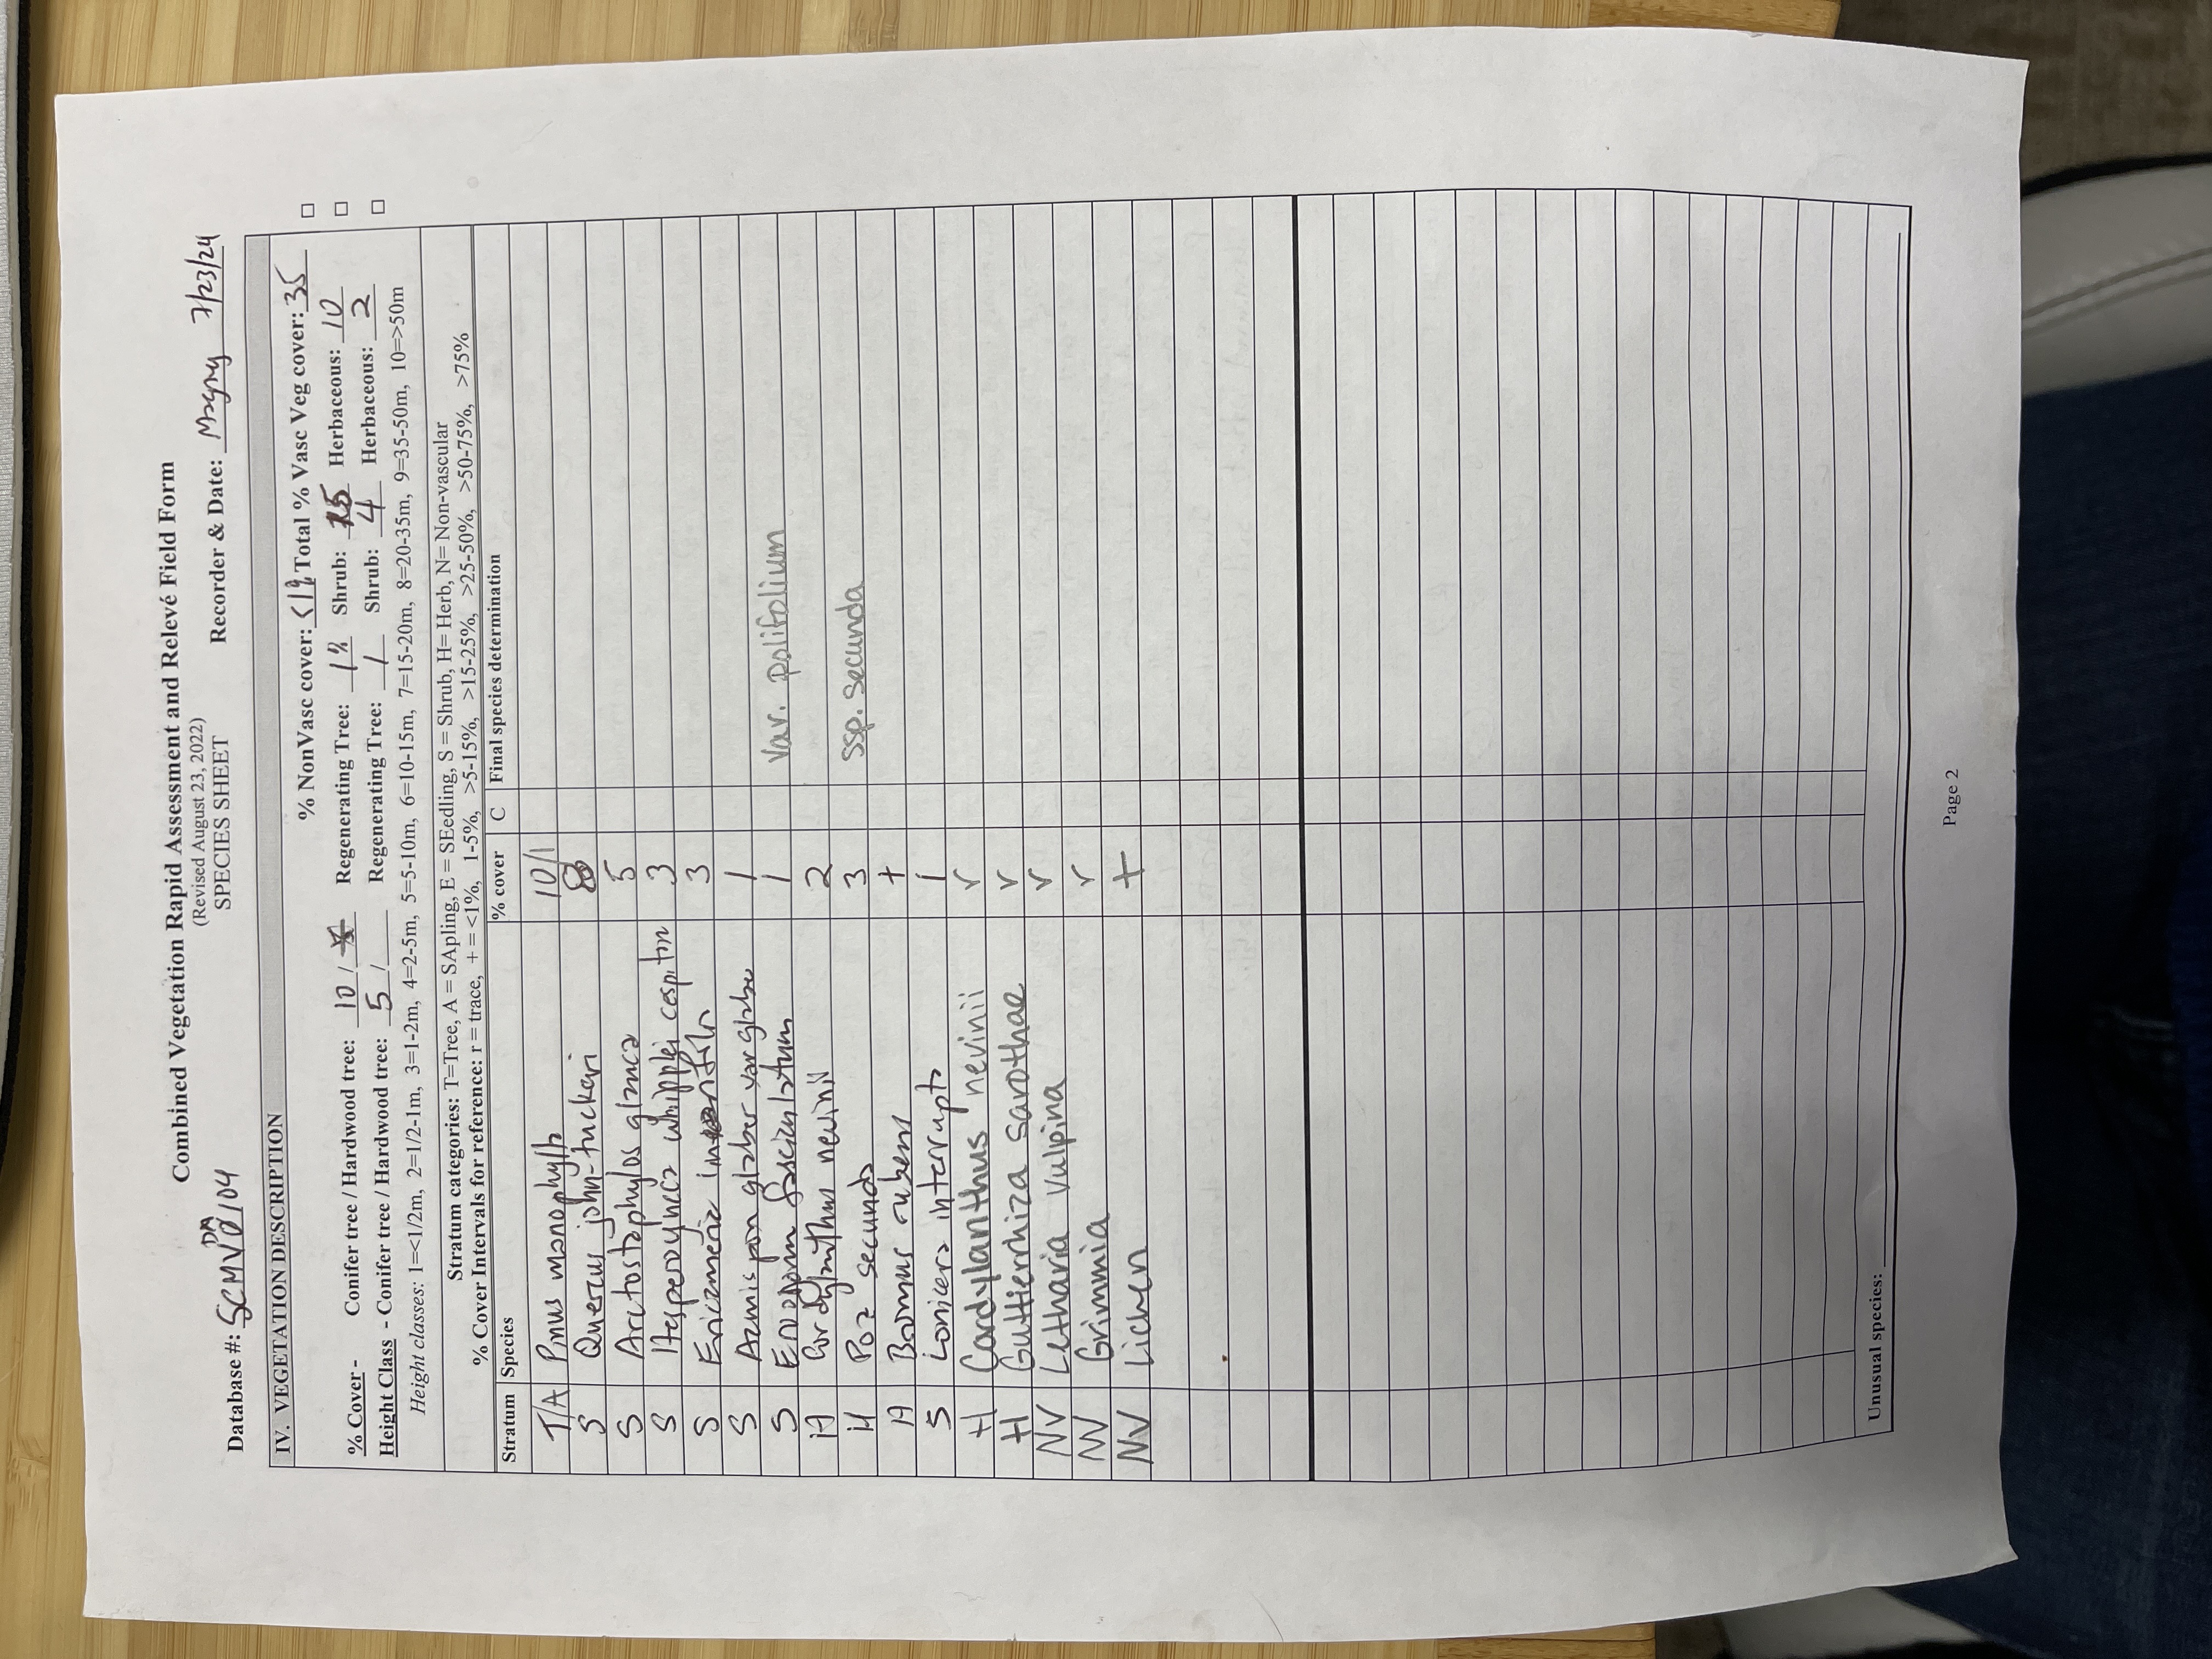 Combined Vegetation Rapid Assessment and Relevé Field Form
(Revised August 23, 2022)
SPECIES SHEET
Database #: SCMVDA0104 Recorder & Date: 7/23/24
IV. VEGETATION DESCRIPTION
% NonVasc cover: <1% Total % Vasc Veg cover: 35
% Cover - Conifer tree / Hardwood tree: 10 / Regenerating Tree: 1% Shrub: 15 Herbaceous: 10
Height Class - Conifer tree / Hardwood tree: 5 / Regenerating Tree: 1 Shrub: 4 Herbaceous: 2
Height classes: 1=<1/2m, 2=1/2-1m, 3=1-2m, 4=2-5m, 5=5-10m, 6=10-15m, 7=15-20m, 8=20-35m, 9=35-50m, 10=>50m
Stratum categories: T=Tree, A = SApling, E = SEedling, S = Shrub, H= Herb, N= Non-vascular
% Cover Intervals for reference: r = trace, + = <1%, 1-5%, >5-15%, >15-25%, >25-50%, >50-75%, >75%
Stratum Species % cover C Final species determination
T/A Pinus monophylla 10/1
S Quercus john-tuckeri 8
S Arctostaphylos glauca 5
S Hesperoyucca whipplei 3
S Ericameria 3
S Acmispon glaber var glaber 1
S Eriogonum fasciculatum 1 var. polifolium
H Cordylanthus nevinii 2
H Poa secunda 3 ssp. secunda
H Bromus rubens +
S Lonicera interrupta 1
H Cordylanthus nevinii r
H Guttierrhiza sarothae r
NV Letharia vulpina r
NV Grimmia r
NV Lichen +
Unusual species:
Page 2